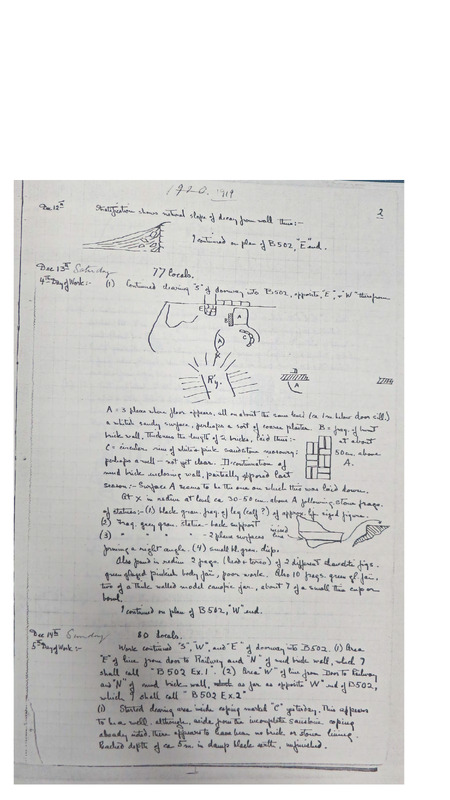 1920. 1919
2
Dec 12th Stratification shows natural slope of decay from wall thus:-
I continued on plan of B502, "E" end.
Dec 13th Saturday 77 locals.
4th Day of Work:- (1) Continued clearing "S" of doorway into B502, opposite, "E", & "W" therefrom
E
B
A
C
A
R'y.
B
A
A = 3 places where floor appears, all on about the same level (ca 1 m below door sill.)
a whitish sandy surface, perhaps a sort of coarse plaster. B = frag. of burnt
brick wall, thickness the length of 2 bricks, laid thus:- at about
C = circular row of white & pink sandstone masonry: 50 cm. above
perhaps a well - not yet clear. D = continuation of A.
mud brick enclosing wall, partially exposed last
season:- Surface A seems to be the one on which this was laid down.
At X in radim at level ca 30-50 cm above A following stone frags.
of statues:- (1) black gran. frag. of leg (calf?) of approx. life sized figure.
(2) Frag. grey gran. statue - back support
(3) " " " " - 2 plane surfaces
forming a right angle. (4) small bl. gran. chip.
Also found in radim 2 frags. (head & torso) of 2 different shawabti figs.
green glazed pinkish body fai., poor work. Also 10 frags. green gl. fai.
two of a thick walled model canopic jar, about 7 of a small thin cup or
bowl.
I continued on plan of B502, "W" end.
Dec 14th Sunday 80 locals.
5th Day of Work:- Work continued "S", "W", and "E" of doorway into B502. (1) Area
"E" of line from door to Railway and "N" of mud brick wall, which I
shall call "B502 Ex. 1". (2) Area "W" of line from Door to Railway
and "N" of mud brick wall, which as far as opposite "W" end of B502,
which I shall call "B502 Ex. 2
(1) Started clearing area inside coping marked "C" yesterday. This appears
to be a well, although, aside from the incomplete sandstone coping
already noted, there appears to have been no brick or stone lining.
Reached depth of ca 5 m in damp black earth, unfinished.